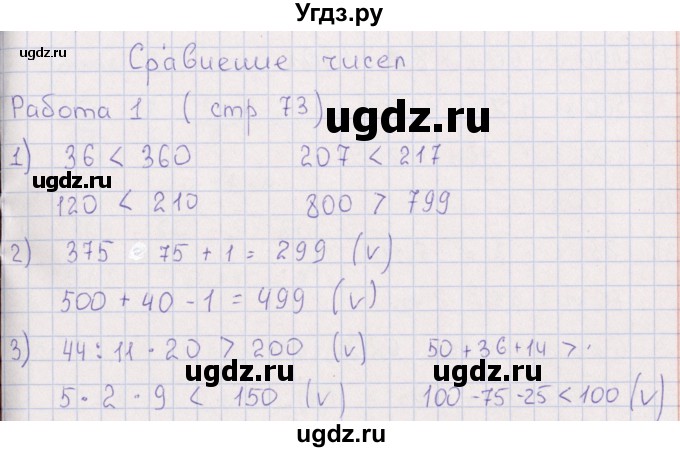 Угдз.ру
ugdz.ru
Сравнение чисел
Работа 1 ( стр 73)
ugdz.ru
1) 36 < 360 207 < 217
ugdz.ru
120 < 210 800 > 799
2) 375 75 + 1 = 299 (v)
500 + 40 - 1 = 499 (v)
ugdz.ru
3) 44 : 11 · 20 > 200 (v) 50 + 36 + 14 > ·
ugdz.ru ugdz.ru
5 · 2 · 9 < 150 (v) 100 - 75 - 25 < 100 (v)
ugdz.ru